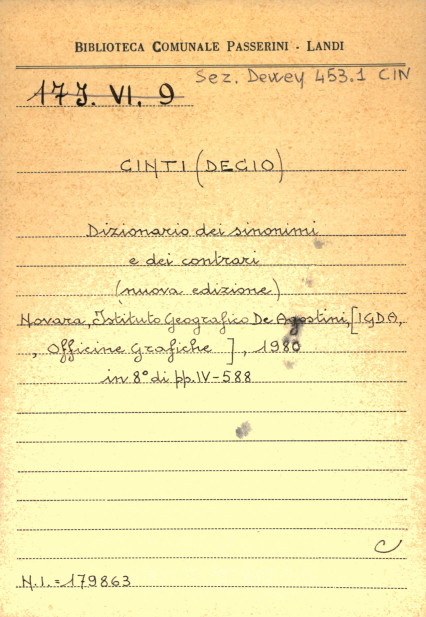 BIBLIOTECA COMUNALE PASSERINI - LANDI
Sez. Dewey 453.1 CIN
17J. VI. 9
CINTI (DECIO)
Dizionario dei sinonimi
e dei contrari
(nuova edizione)
Novara, Istituto Geografico De Agostini, [IGDA,
, Officine Grafiche ], 1980
in 8° di pp. IV-588
C
N.I.=179863